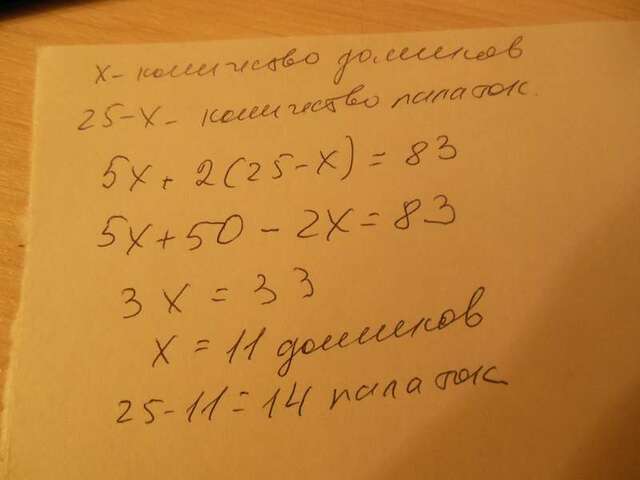 х - количество домиков
25-х - количество палаток.
5х + 2(25-х) = 83
5х+50 - 2х = 83
3х = 33
х = 11 домиков
25-11=14 палаток